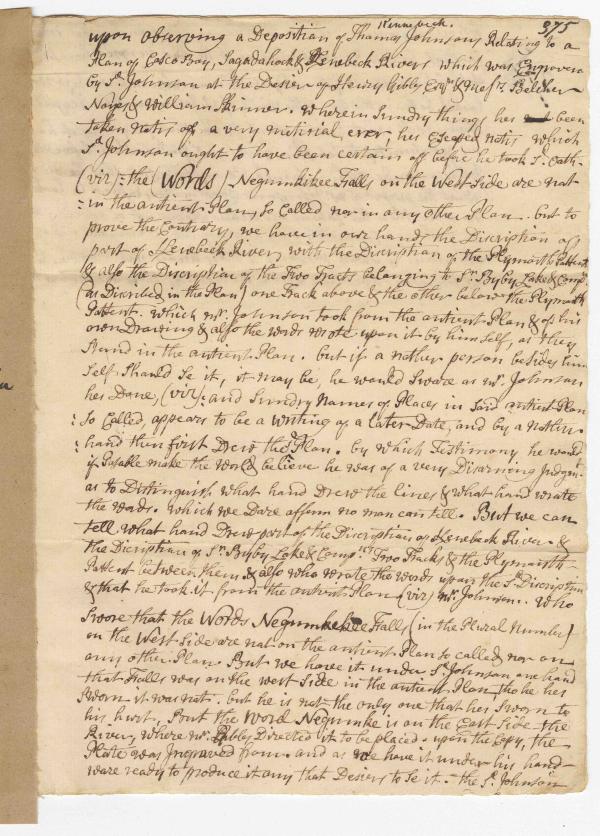 Kennebeck.
375
upon observing a Deposition of Thomas Johnsons Relating to a
Plan of Casco Bay, Sagadahock & Kenebeck Rivers which was Engraven
by Sd. Johnson at the Desier of Henry Gibbs Esqr & Messrs. Belcher
Noyes & William Skinner. Wherein Sundry things hes been
taken notis off, a very matirial error, hes Escaped notis which
Sd. Johnson ought to have been certain off before he took Sd. Oath
(viz): the (Words) Negumkikee Falls on the West Side are not
in the antient Plan, So Called nor in any other Plan. but to
prove the Contrary, we have in our hands the Discription of
part of Kenebeck River, with the Discription of the Plymouth Pattent
& also the Discription of the Two Tracts belonging to Sr. Byby Lake & Compy
(as Discribed in the Plan) one Track above & the other below the Plymouth
Pattent. which mr. Johnson took from the antient Plan & of his
own Drawing & also the words wrote upon it by himself, as they
Stand in the antient Plan. but if a nother person besides him
Self Should Se it, it may be, he would Sware as mr. Johnson
hes Done, (viz): and Sundry Names of Places in Said antient Plan
So Called, appears to be a writing of a later Date, and by a nother
hand then first Drew the Sd. Plan. by which Testimony he would
if Posable make the World believe he was of a very Disarning Judgmt
as to Distinguish what hand Drew the lines & what hand wrate
the words. which we Dare affirm no man can tell. But we can
tell what hand Drew part of the Discription of Kenebeck River &
the Dicription of Sr. Byby Lake & Compys Two Tracks & the Plymouth
Pattent between them & also who wrate the words upon the Sd Discription
& that he took it from the antient Plan (viz) mr. Johnson. Who
Swore that the Words Negumkekee Falls (in the Plural Number)
on the West Side are not on the antient Plan so called nor on
any other Plan. But we have it under Sd. Johnson one hand
that Falls was on the west Side in the antient Plan tho he hes
Sworn it was not. but he is not the only one that hes Sworn to
his hurt, but the Word Negumke is on the East Side the
River, where mr. Gibbs Directed it to be placed upon the Copy, the
Plate was Ingraved from. and as we have it under his hand
ware ready to produce it any that Desiers to Se it. the Sd. Johnson